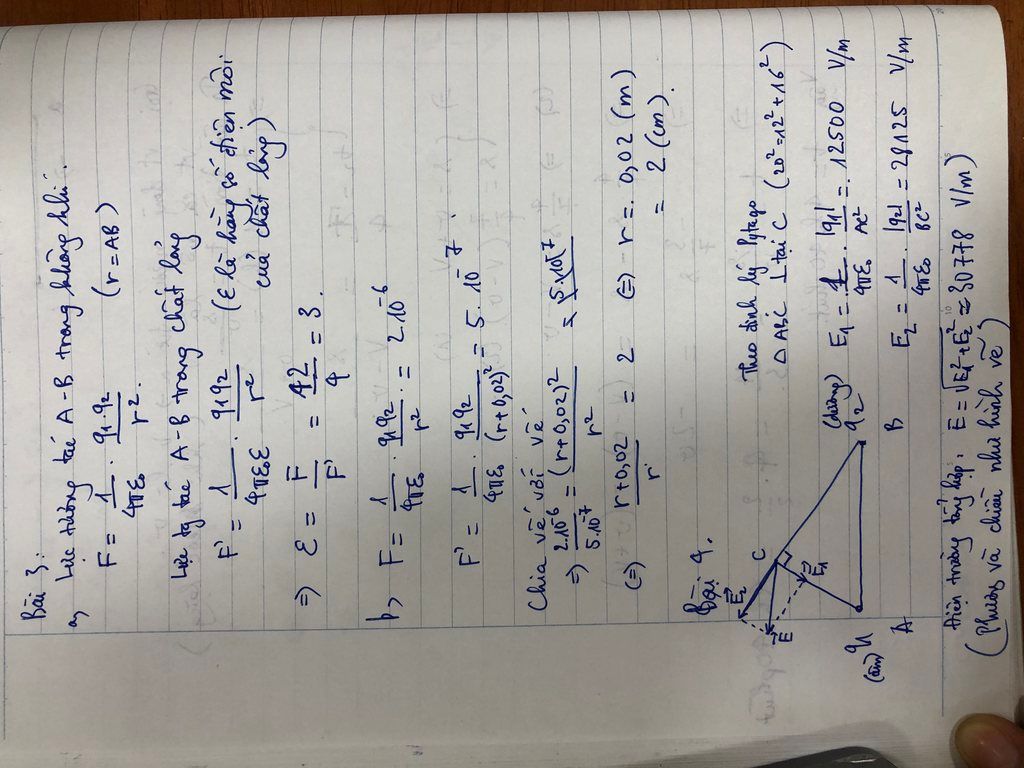 Bài 3:
a, Lực tương tác A-B trong không khí.
F = 1/4πε₀ . q₁q₂/r². (r = AB)
Lực tg tác A-B trong chất lỏng
F' = 1/4πε₀ε . q₁q₂/r² (ε là hằng số điện môi
của chất lỏng)
=> ε = F/F' = 12/4 = 3.
b, F = 1/4πε₀ . q₁q₂/r² = 2.10⁻⁶
F' = 1/4πε₀ . q₁q₂/(r+0,02)² = 5.10⁻⁷
Chia vế với vế
=> 2.10⁻⁶/5.10⁻⁷ = (r+0,02)²/r²
(=) r+0,02/r = 2 (=) r = 0,02 (m)
= 2 (cm).
Bài 4.
Theo định lý Pytago
△ ABC ⊥ tại C (20² = 12² + 16²)
E₁ = 1/4πε₀ . |q₁|/AC² = 12500 V/m
E₂ = 1/4πε₀ . |q₂|/BC² = 28125 V/m
E₂
E
C
E₁
q₁ (âm)
A
(dương)
q₂
B
Điện trường tổng hợp: E = √E₁² + E₂² ≈ 30778 V/m)
(Phương và chiều như hình vẽ)